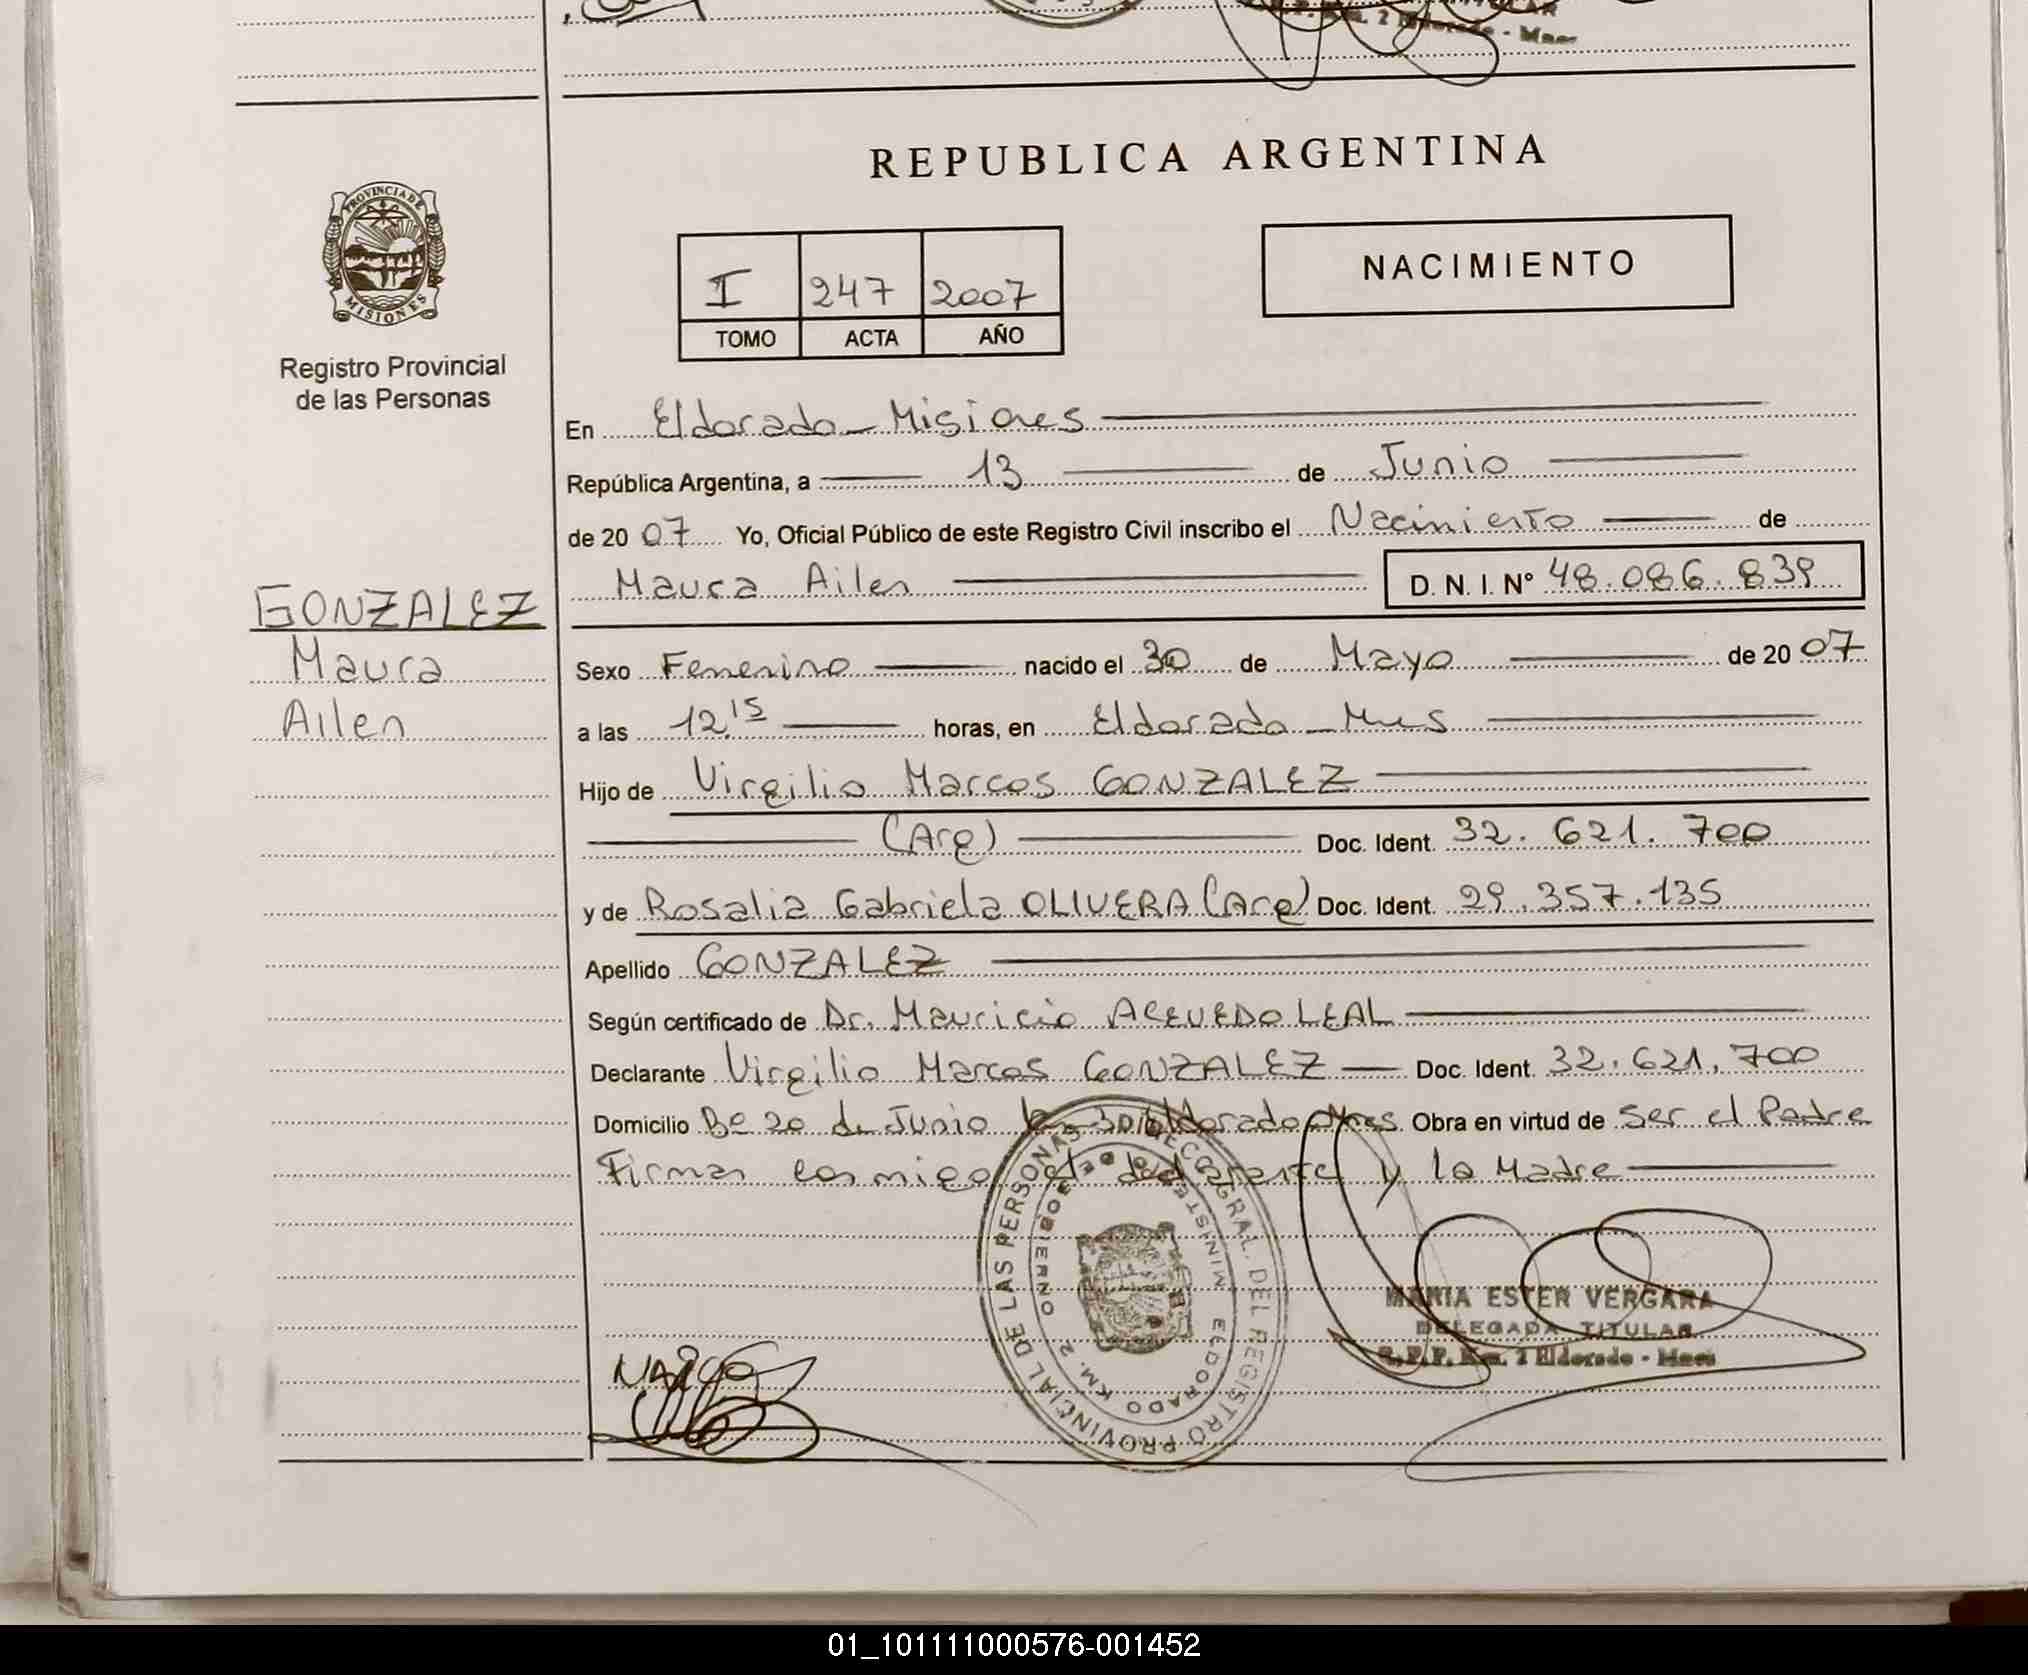 R.P.P. Km. 2 Eldorado - Mnes
REPUBLICA ARGENTINA
PROVINCIA DE MISIONES
I 247 2007
TOMO ACTA AÑO
NACIMIENTO
Registro Provincial
de las Personas
En Eldorado - Misiones
República Argentina, a 13 de Junio
de 2007 Yo, Oficial Público de este Registro Civil inscribo el Nacimiento de
Maura Ailen D. N. I. Nº 48.086.839
GONZALEZ
Maura
Ailen
Sexo Femenino nacido el 30 de Mayo de 2007
a las 12.15 horas, en Eldorado - Mnes
Hijo de Virgilio Marcos GONZALEZ
(Arg) Doc. Ident. 32.621.700
y de Rosalia Gabriela OLIVERA (Arg) Doc. Ident. 29.357.135
Apellido GONZALEZ
Según certificado de Dr. Mauricio ACEVEDO LEAL
Declarante Virgilio Marcos GONZALEZ Doc. Ident. 32.621.700
Domicilio Bº 20 de Junio Eldorado Mnes Obra en virtud de ser el Padre
Firman conmigo el declarante y la Madre
DIRECC. GRAL. DEL REGISTRO PROVINCIAL DE LAS PERSONAS
MINISTERIO DE GOBIERNO
ELDORADO KM. 2
MARIA ESTER VERGARA
DELEGADA TITULAR
R.P.P. Km. 2 Eldorado - Mnes
01_101111000576-001452